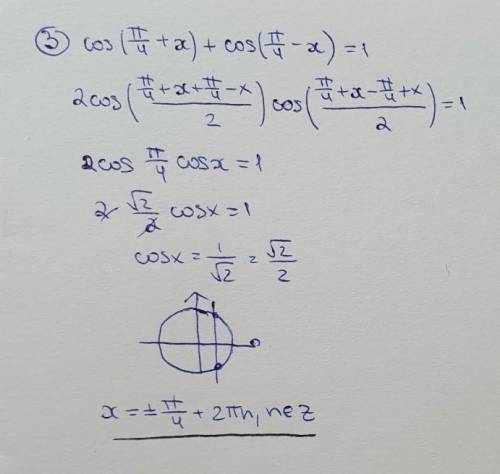 ③ cos(π/4 + x) + cos(π/4 - x) = 1
2cos((π/4 + x + π/4 - x)/2) cos((π/4 + x - π/4 + x)/2) = 1
2cos π/4 cosx = 1
2 √2/2 cosx = 1
cosx = 1/√2 = √2/2
x = ± π/4 + 2πn, n∈Z